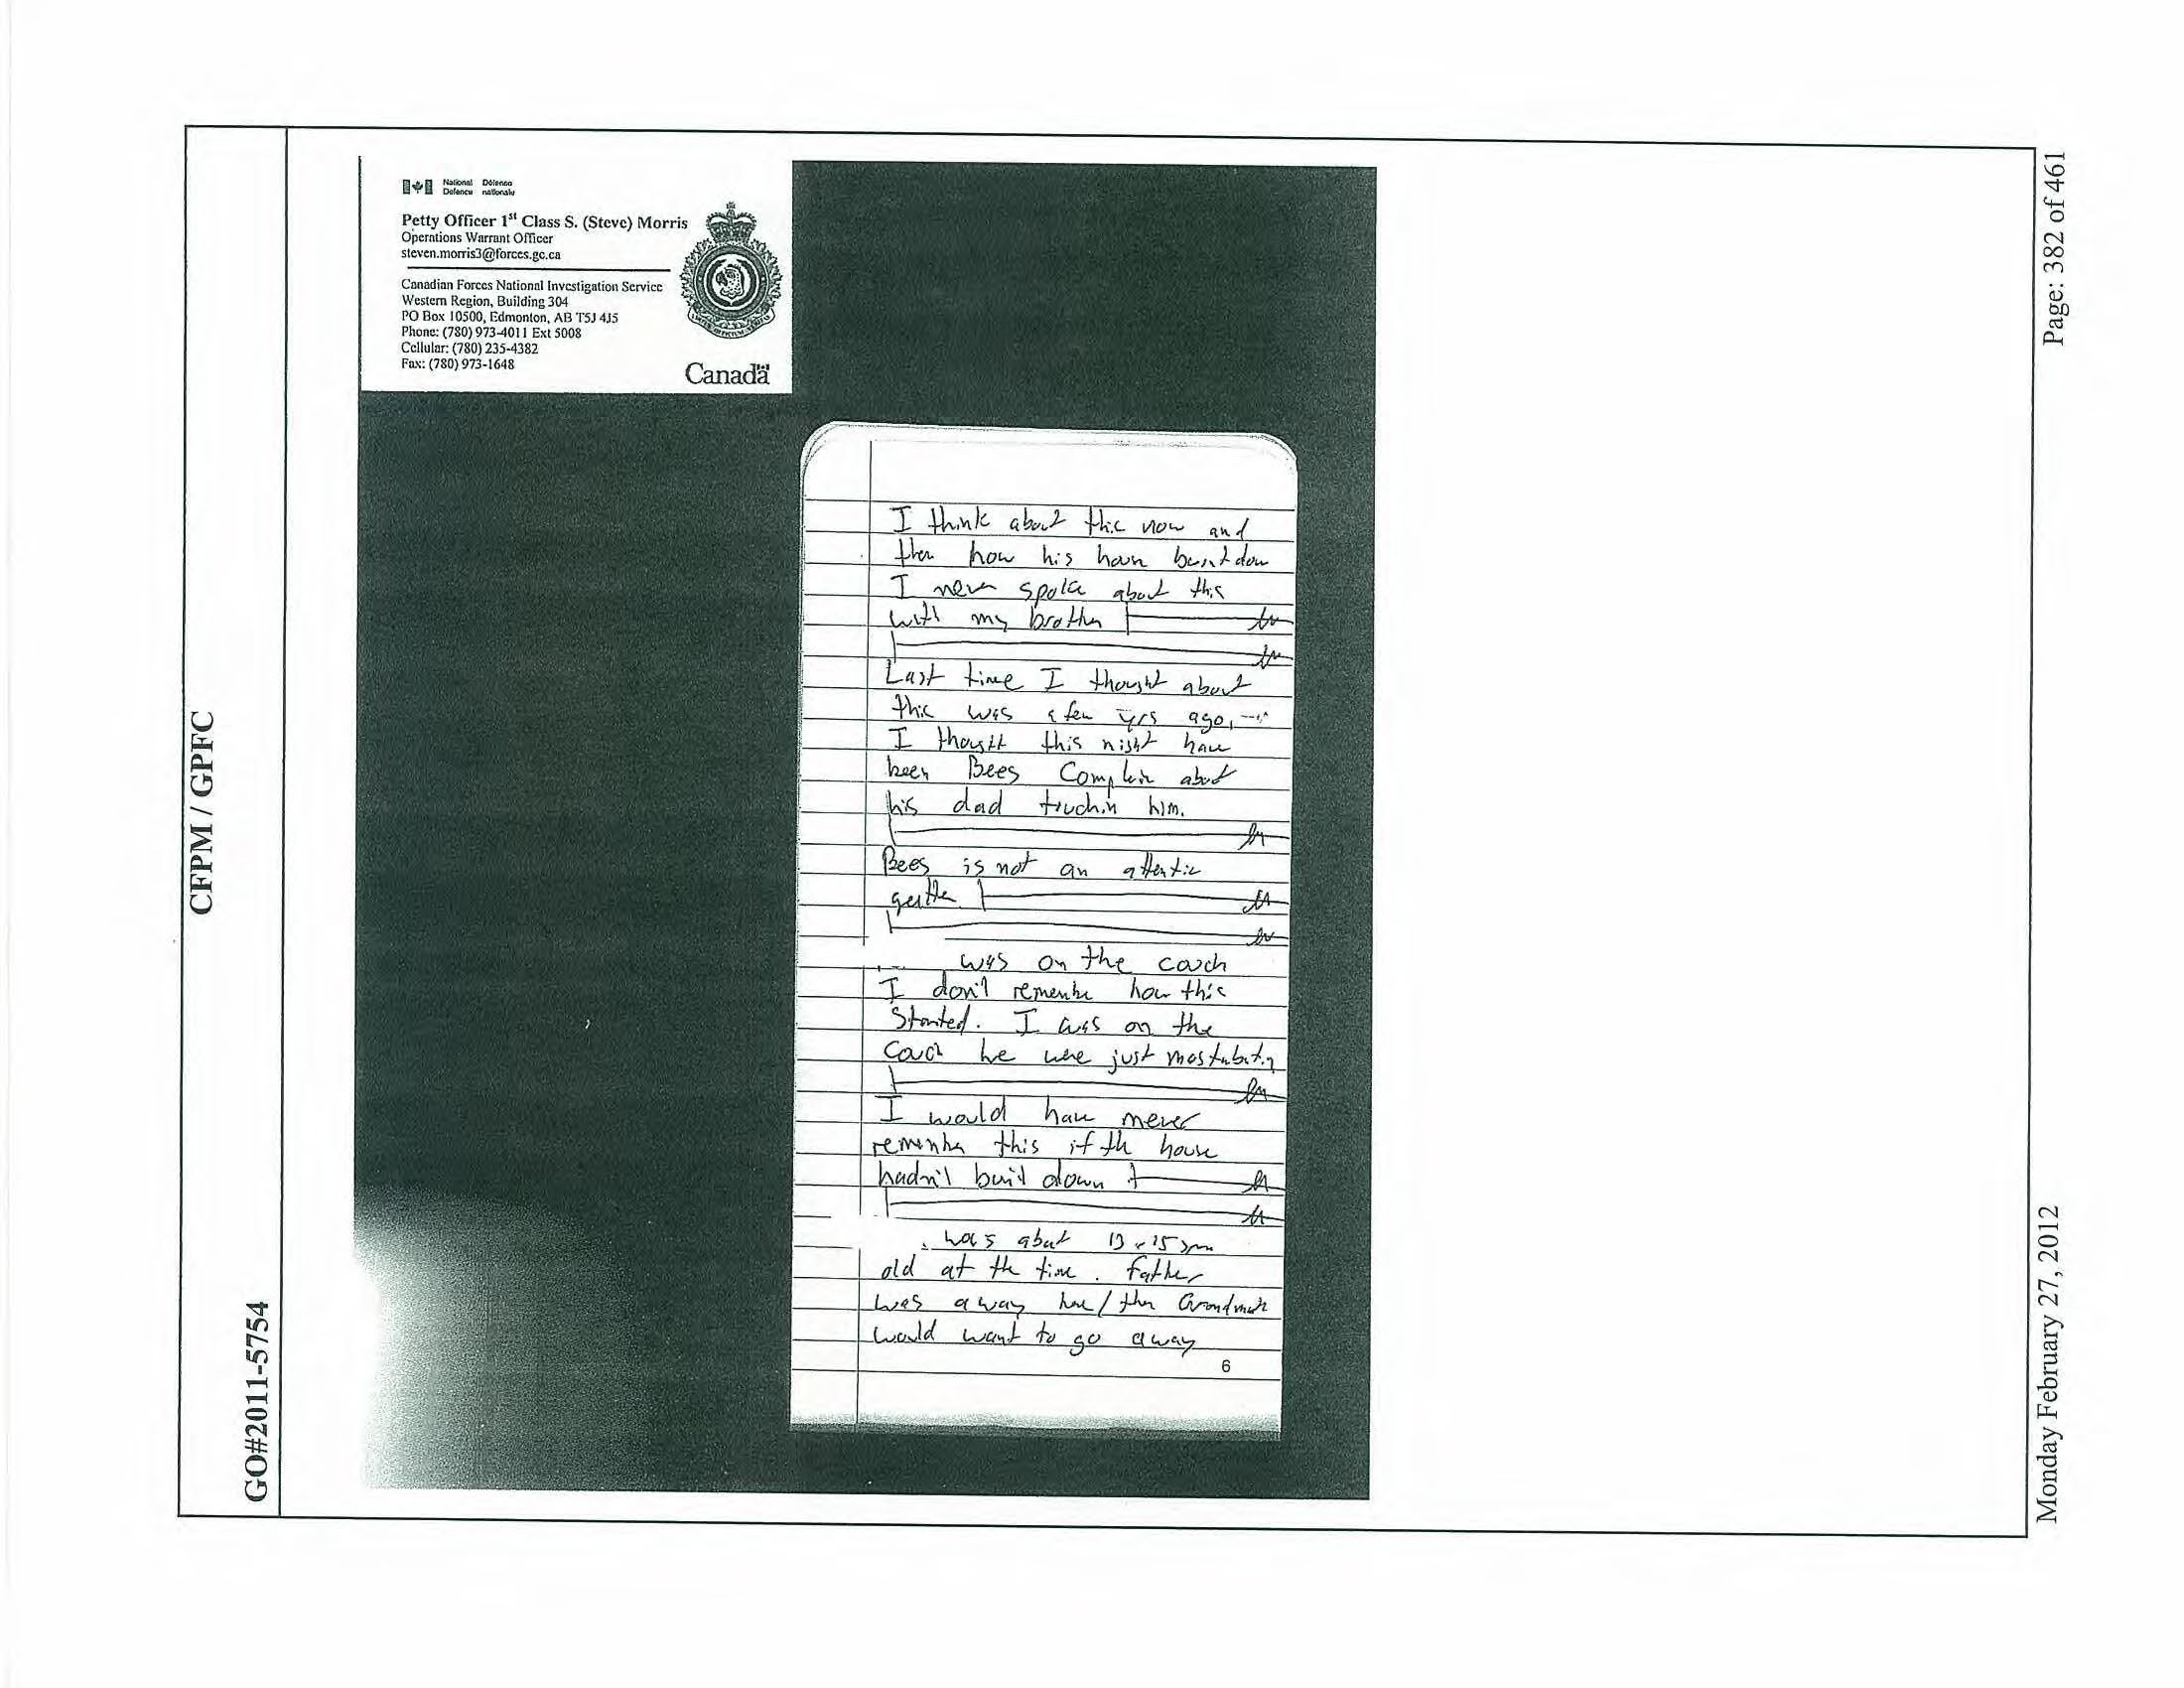 CFPM / GPFC
GO#2011-5754
National Défense
Defence nationale
Petty Officer 1st Class S. (Steve) Morris
Operations Warrant Officer
steven.morris3@forces.gc.ca
Canadian Forces National Investigation Service
Western Region, Building 304
PO Box 10500, Edmonton, AB T5J 4J5
Phone: (780) 973-4011 Ext 5008
Cellular: (780) 235-4382
Fax: (780) 973-1648
Canada
I think about this now and
then how his
I never spoke about this
with my brother
Last time I thought about
this was a few yrs ago,
I thought this might have
been Bees about
his dad him.
Bees is not an
was on the couch
I don't remember how this
Started. I was on the
couch we were just
I would have never
remember this if the house
hadn't down
was about
old at the time. Father
was away
would want to go away
6
Page: 382 of 461
Monday February 27, 2012